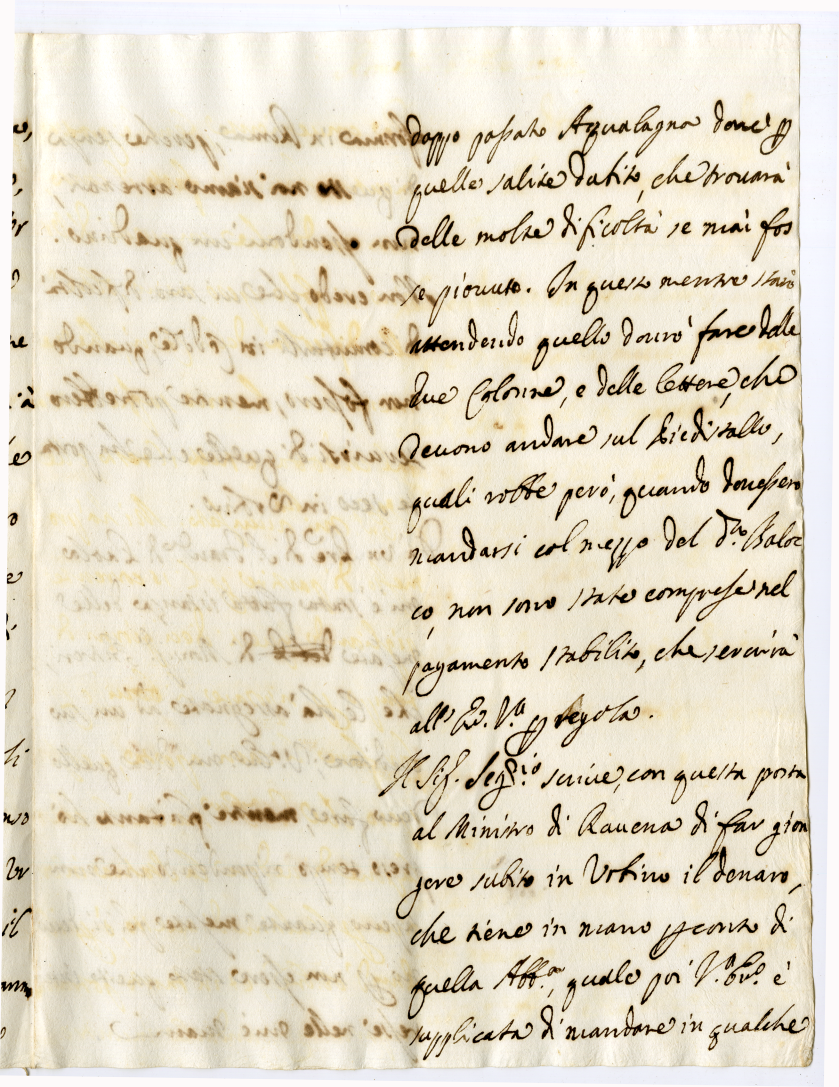 doppo passato Aqualagna dove' p
quelle salite dubito, che trovarà
delle molte dificoltà se mai fos
se piovuto. In questo mentre starò
attendendo quello dovrò fare delle
due Colonne, e delle lettere, che
devono andare sul Piedistallo,
quali robbe però, quando dovessero
mandarsi col mezzo del d.º Baloc
co, non sono state comprese nel
pagamento stabilito, che servirà
all' V.ª p regola.
Il Sig. Seg.rio scrive, con questa posta
al Ministro di Ravena di far gion
gere subito in Urbino il denaro,
che tiene in mano p conto di
quella Abb.ª, quale poi V. è
supplicata di mandare in qualche